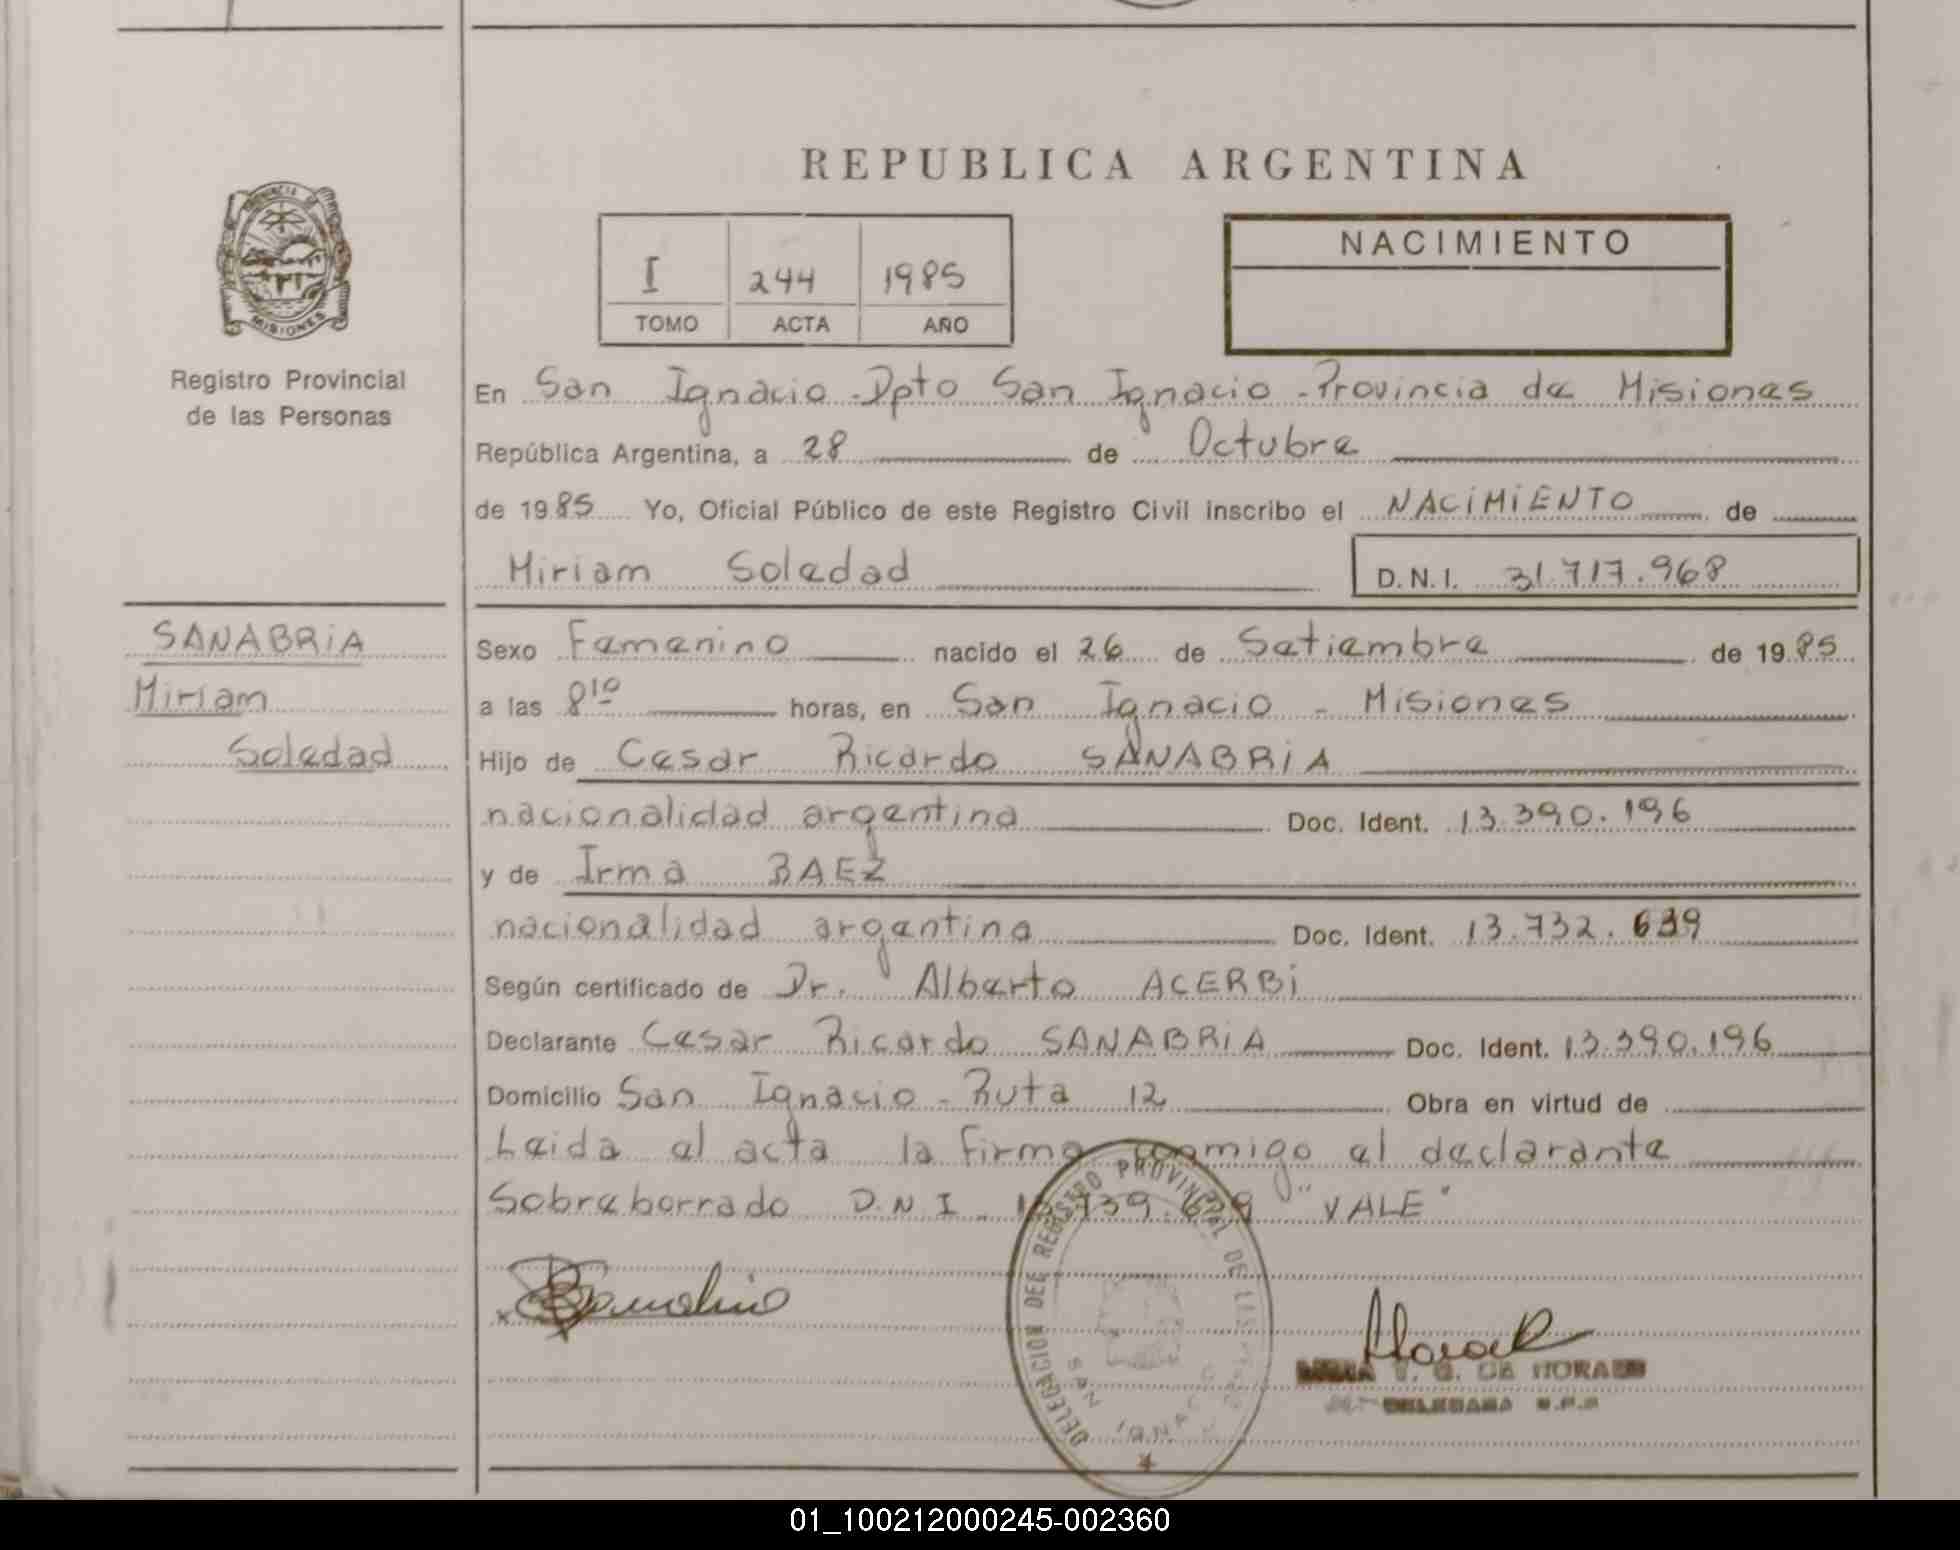 REPUBLICA ARGENTINA
PROVINCIA DE
MISIONES
Registro Provincial
de las Personas
I 244 1985
TOMO ACTA AÑO
NACIMIENTO
En San Ignacio - Dpto San Ignacio - Provincia de Misiones
República Argentina, a 28 de Octubre
de 1985 Yo, Oficial Público de este Registro Civil inscribo el NACIMIENTO de
Miriam Soledad D.N.I. 31.717.968
SANABRIA
Miriam
Soledad
Sexo Femenino nacido el 26 de Setiembre de 1985
a las 8 10 horas, en San Ignacio - Misiones
Hijo de Cesar Ricardo SANABRIA
nacionalidad argentina Doc. Ident. 13.390.196
y de Irma BAEZ
nacionalidad argentina Doc. Ident. 13.732.639
Según certificado de Dr. Alberto ACERBI
Declarante Cesar Ricardo SANABRIA Doc. Ident. 13.390.196
Domicilio San Ignacio - Ruta 12 Obra en virtud de
Leida el acta la firma conmigo el declarante
Sobreborrado D.N I - "VALE"
DELEGACION DEL REGISTRO PROVINCIAL DE LAS
SAN IGNACIO
T. G. DE MORAES
DELEGADA R.P.P
01_100212000245-002360